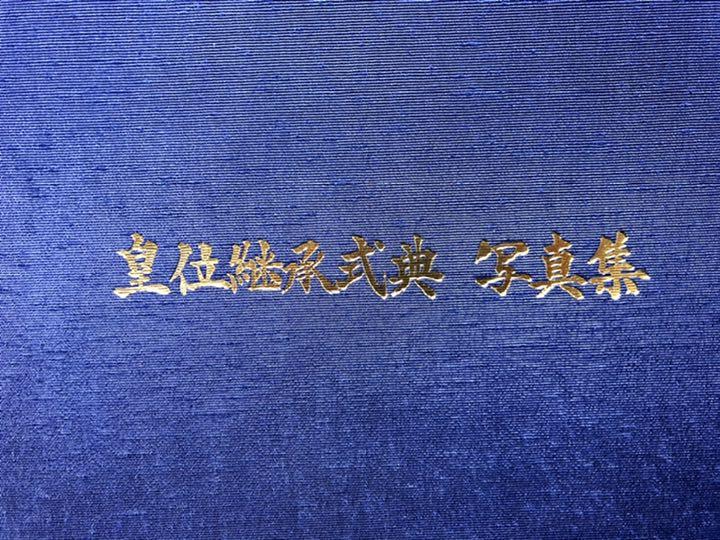 皇位継承式典 写真集